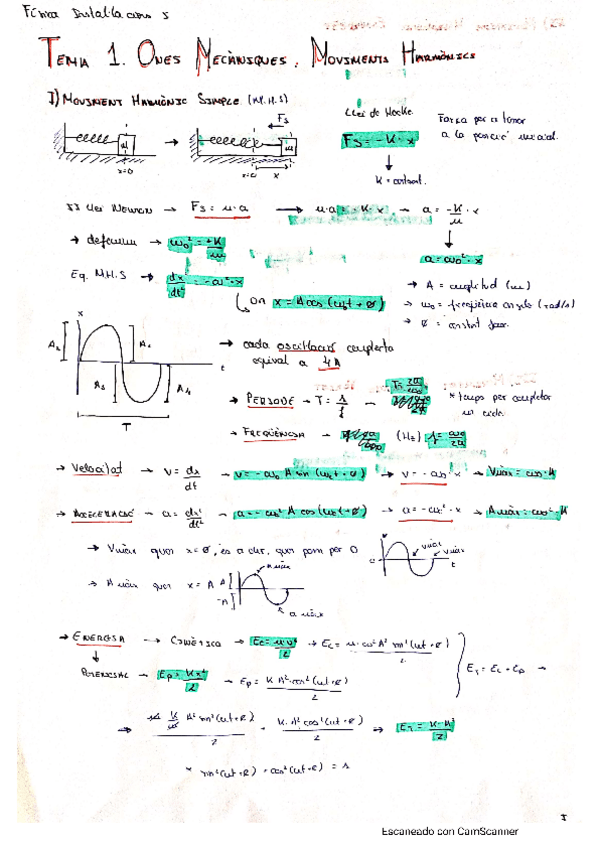 Física Instal·lacions I
TEMA 1. ONES MECÀNIQUES. MOVIMENTS HARMÒNICS
I) MOVIMENT HARMÒNIC SIMPLE (M.H.S)
Llei de Hooke
Fs = -K · x
Força per a tornar a la posició inicial.
K = constant.
Fs
x=0
x=0 x
II Llei Newton → Fs = m·a → m·a = -K·x → a = -K/m · x
→ definim → ω₀² = +K/m
a = ω₀²·x
Eq. M.H.S → dx/dt² = -ω²·x
ON x = A cos (ω₀t + Ø)
→ A = amplitud (m)
→ ω₀ = freqüència angular (rad/s)
→ Ø = constant fase.
→ cada oscil·lació completa
equival a 4A
x
A₁ A₂ A₃ A₄
t
T
→ PERÍODE → T = 1/f → T = 2π/ω₀
* temps per completar un cicle.
→ FREQÜÈNCIA → (Hz) f = ω₀/2π
→ Velocitat → v = dx/dt → v = -ω₀ A sin (ω₀t + Ø) → → Vmàx = ω₀·A
→ ACCELERACIÓ → a = dx²/dt² → a = -ω₀² A cos (ω₀t + Ø) → a = -ω₀²·x → Amàx = ω₀²·A
→ Vmàx quan x = Ø, és a dir, quan passa per 0
vmàx
vmàx
→ A màx quan x = A
A
-A
a màx
a màx
→ ENERGIA → Cinètica → Ec = m·v²/2 → Ec = m·ω²A² sin²(ωt+φ)/2
POTENCIAL → Ep = Kx²/2 → Ep = K A² cos²(ωt+φ)/2
ET = Ec + Ep →
⇒ m K/m A² sin²(ωt+φ)/2 + K·A² cos²(ωt+φ)/2 ⇒ ET = K·A²/2
* sin²(ωt+φ) + cos²(ωt+φ) = 1
1
Escaneado con CamScanner